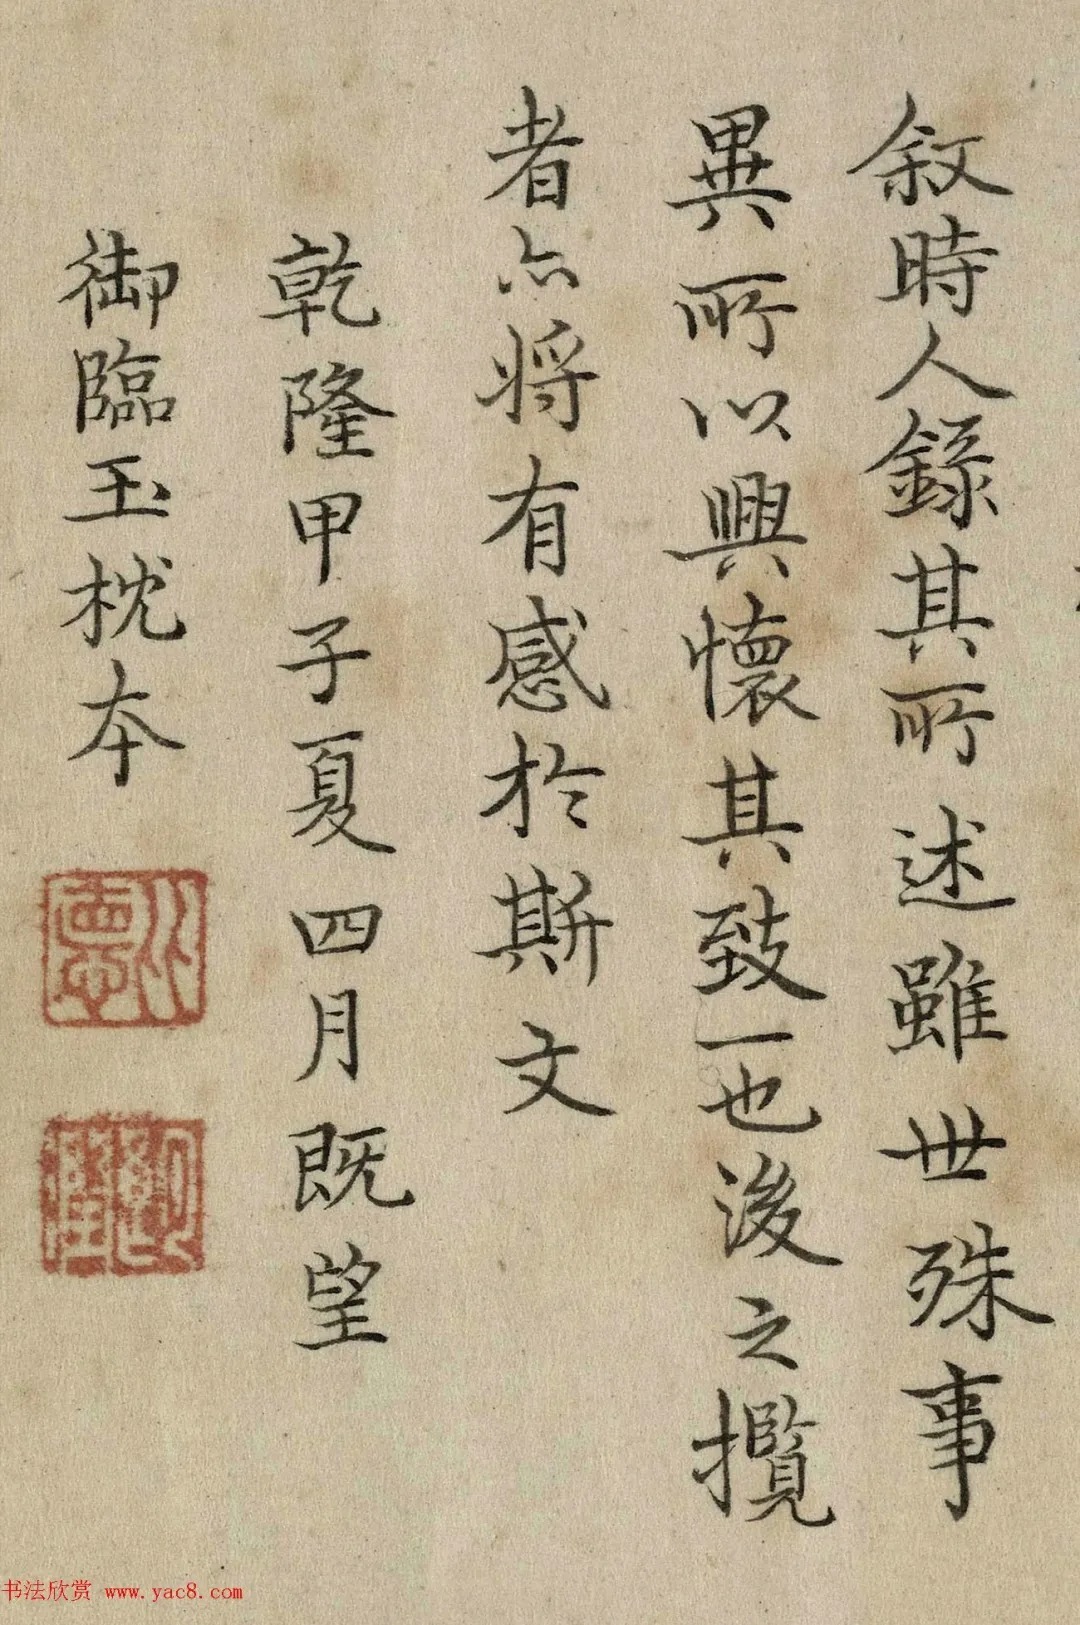 叙時人錄其所述雖世殊事
異所以興懷其致一也後之攬
者亦將有感於斯文
乾隆甲子夏四月既望
御臨玉枕本
书法欣赏 www.yac8.com